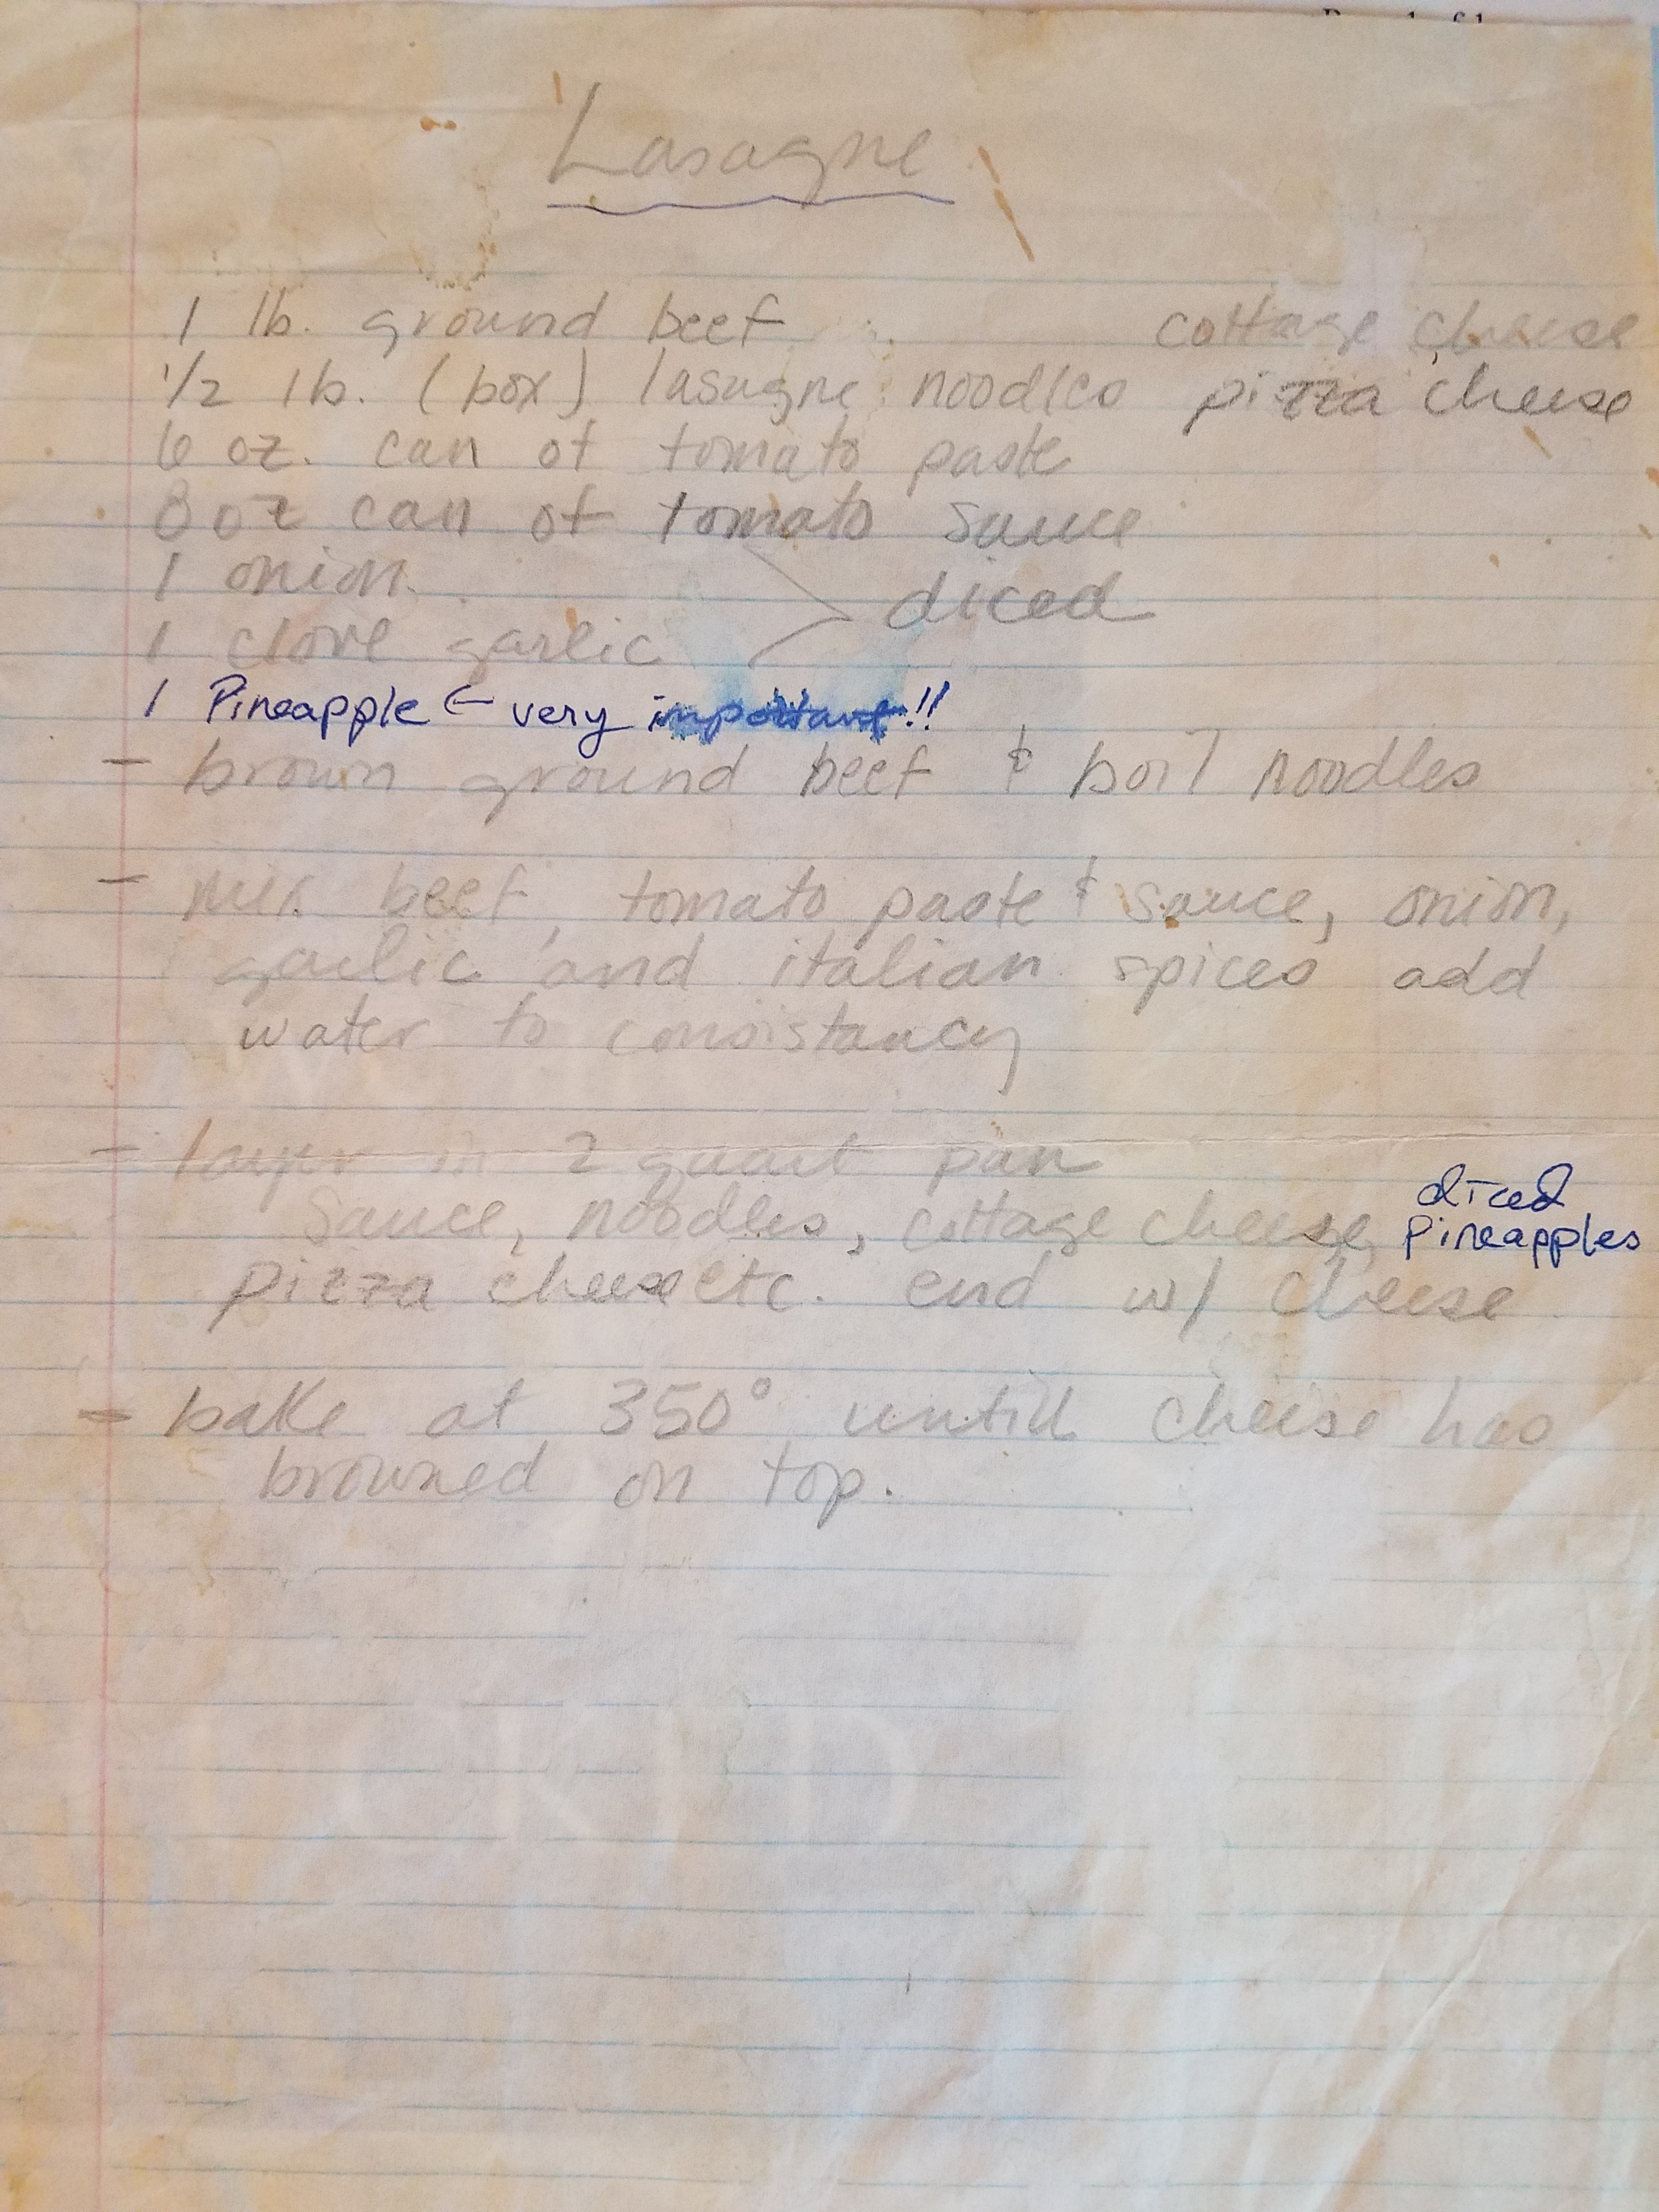 Lasagne
1 lb. ground beef
cottage cheese
1/2 lb. (box) lasagne noodles
pizza cheese
6 oz. can of tomato paste
8 oz can of tomato sauce
1 onion
diced
1 clove garlic
1 Pineapple ← very important!!
- brown ground beef & boil noodles
- mix beef, tomato paste & sauce, onion,
garlic and italian spices add
water to consistancy
- layer in 2 quart pan
diced
sauce, noodles, cottage cheese, Pineapples
pizza cheese etc. end w/ cheese
- bake at 350° untill cheese has
browned on top.